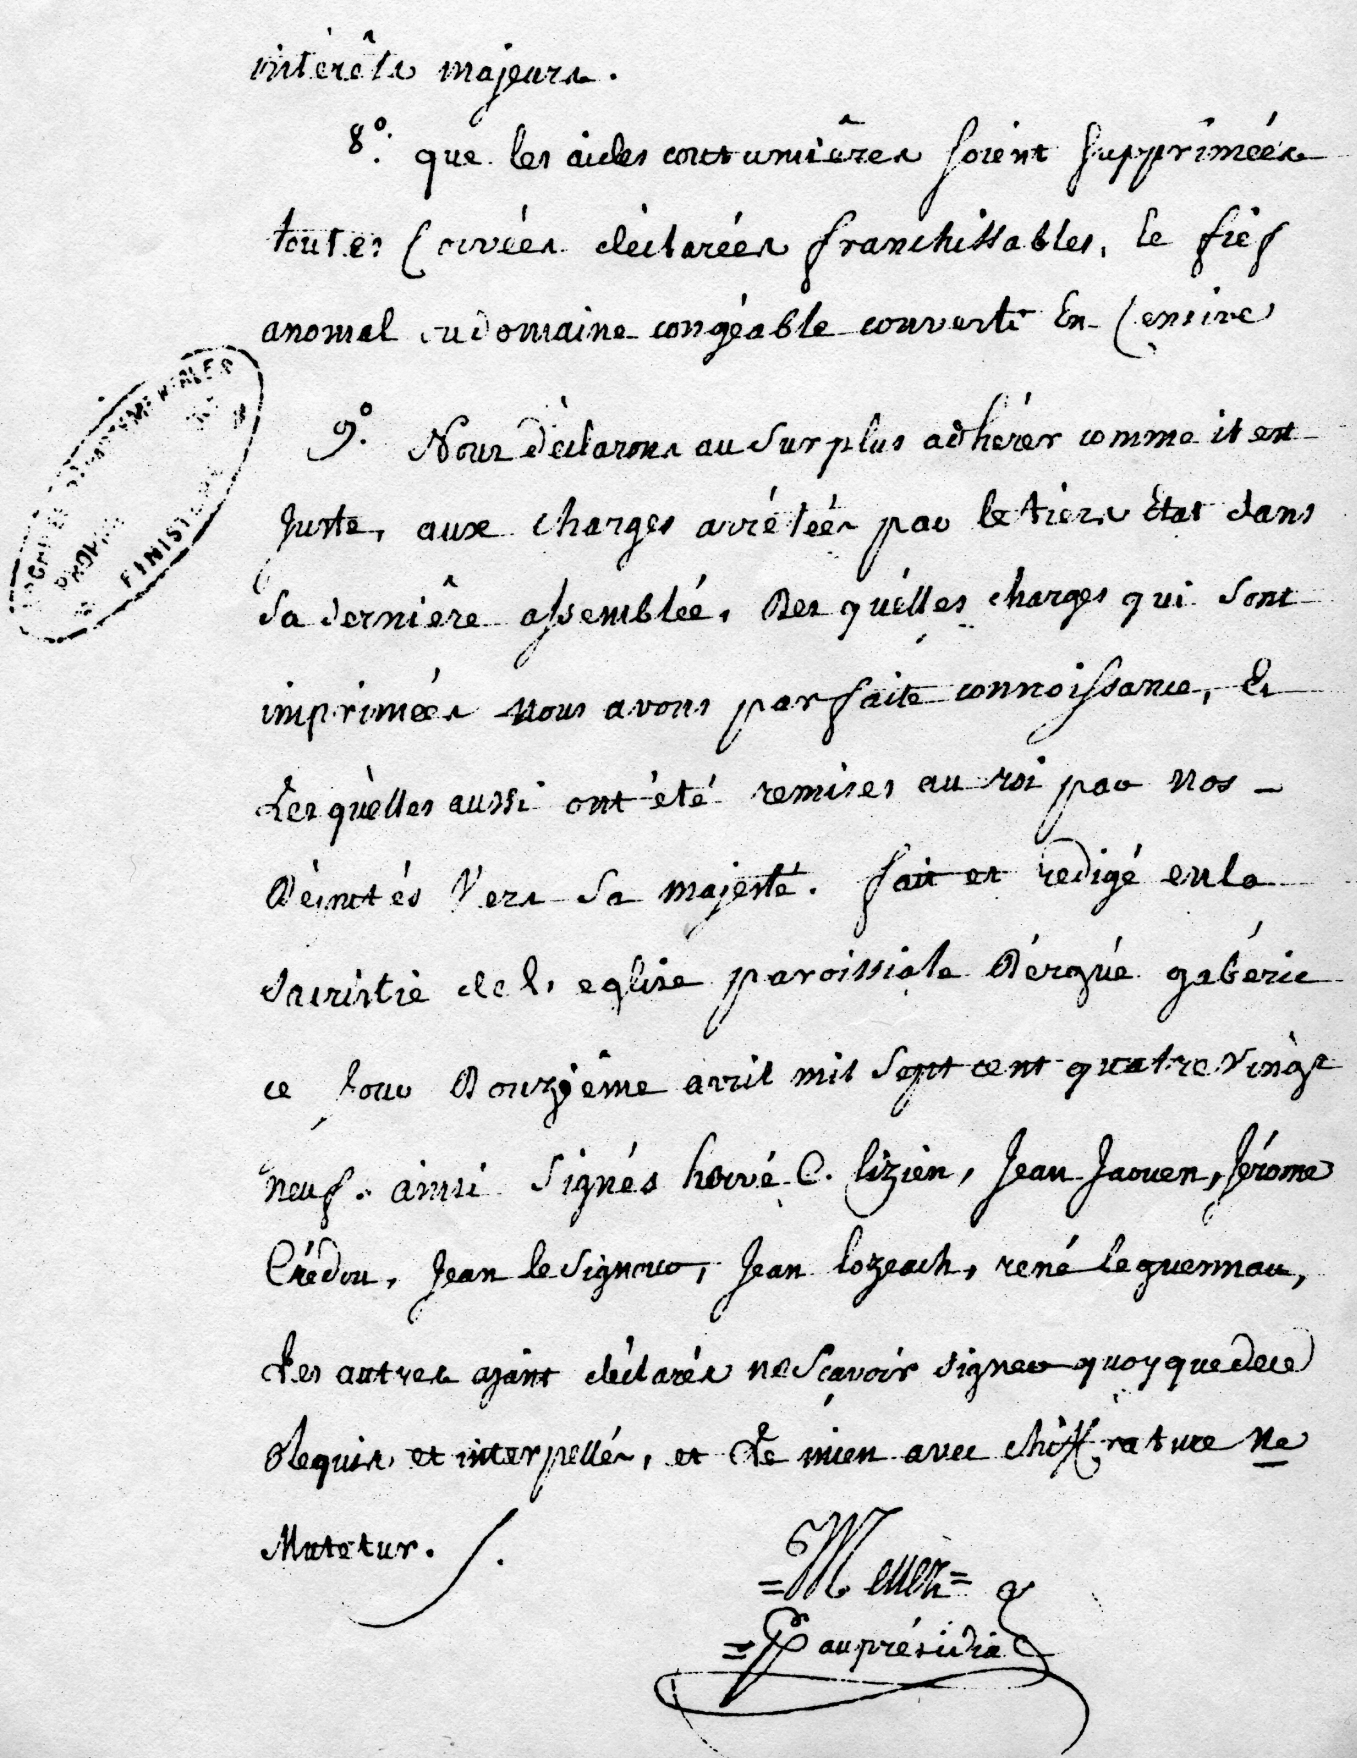 intérêts majeurs.
8°. que les aides coutumiêres soient supprimées
toutes Corvées déclarées franchissables, le fief
anomal ou domaine congéable converti En Censive
9°. Nous déclarons au Surplus adhérer comme il est
Juste, aux charges arrétées par le tiers état dans
Sa derniêre assemblée, Des quélles charges qui Sont
imprimées Nous avons parfaite connoissance, Et
Les quèlles aussi ont été remises au roi par Nos -
Députés Vers Sa majesté. fait et redigé en la
Sacristie de l'eglise paroissiale D'érgué gabéric
ce Jour Douzième avril mil Sept cent quatre Vingt
neuf. ainsi Signés hervé C. lizien, Jean Jaouen, Jérome
Crédou, Jean le Signour, Jean lozeach, rené le guennau,
Les autres ajant déclarés ne Sçavoir Signer quoyque de ce
Requis et interpellés, et Le mien avec chiffrature Ne
Mutetur.
ARCHIVES DÉPARTEMENTALES
DU
FINISTÈRE